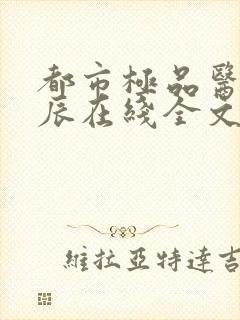 都市極品醫
辰在綫全文
維拉亞特達吉